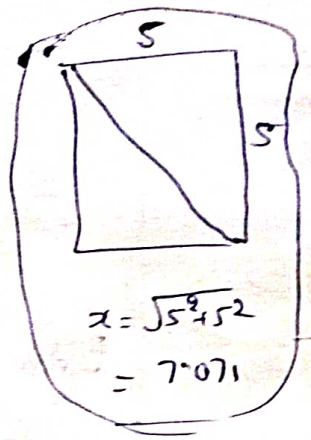 5
5
x = √5²+5²
= 7.071